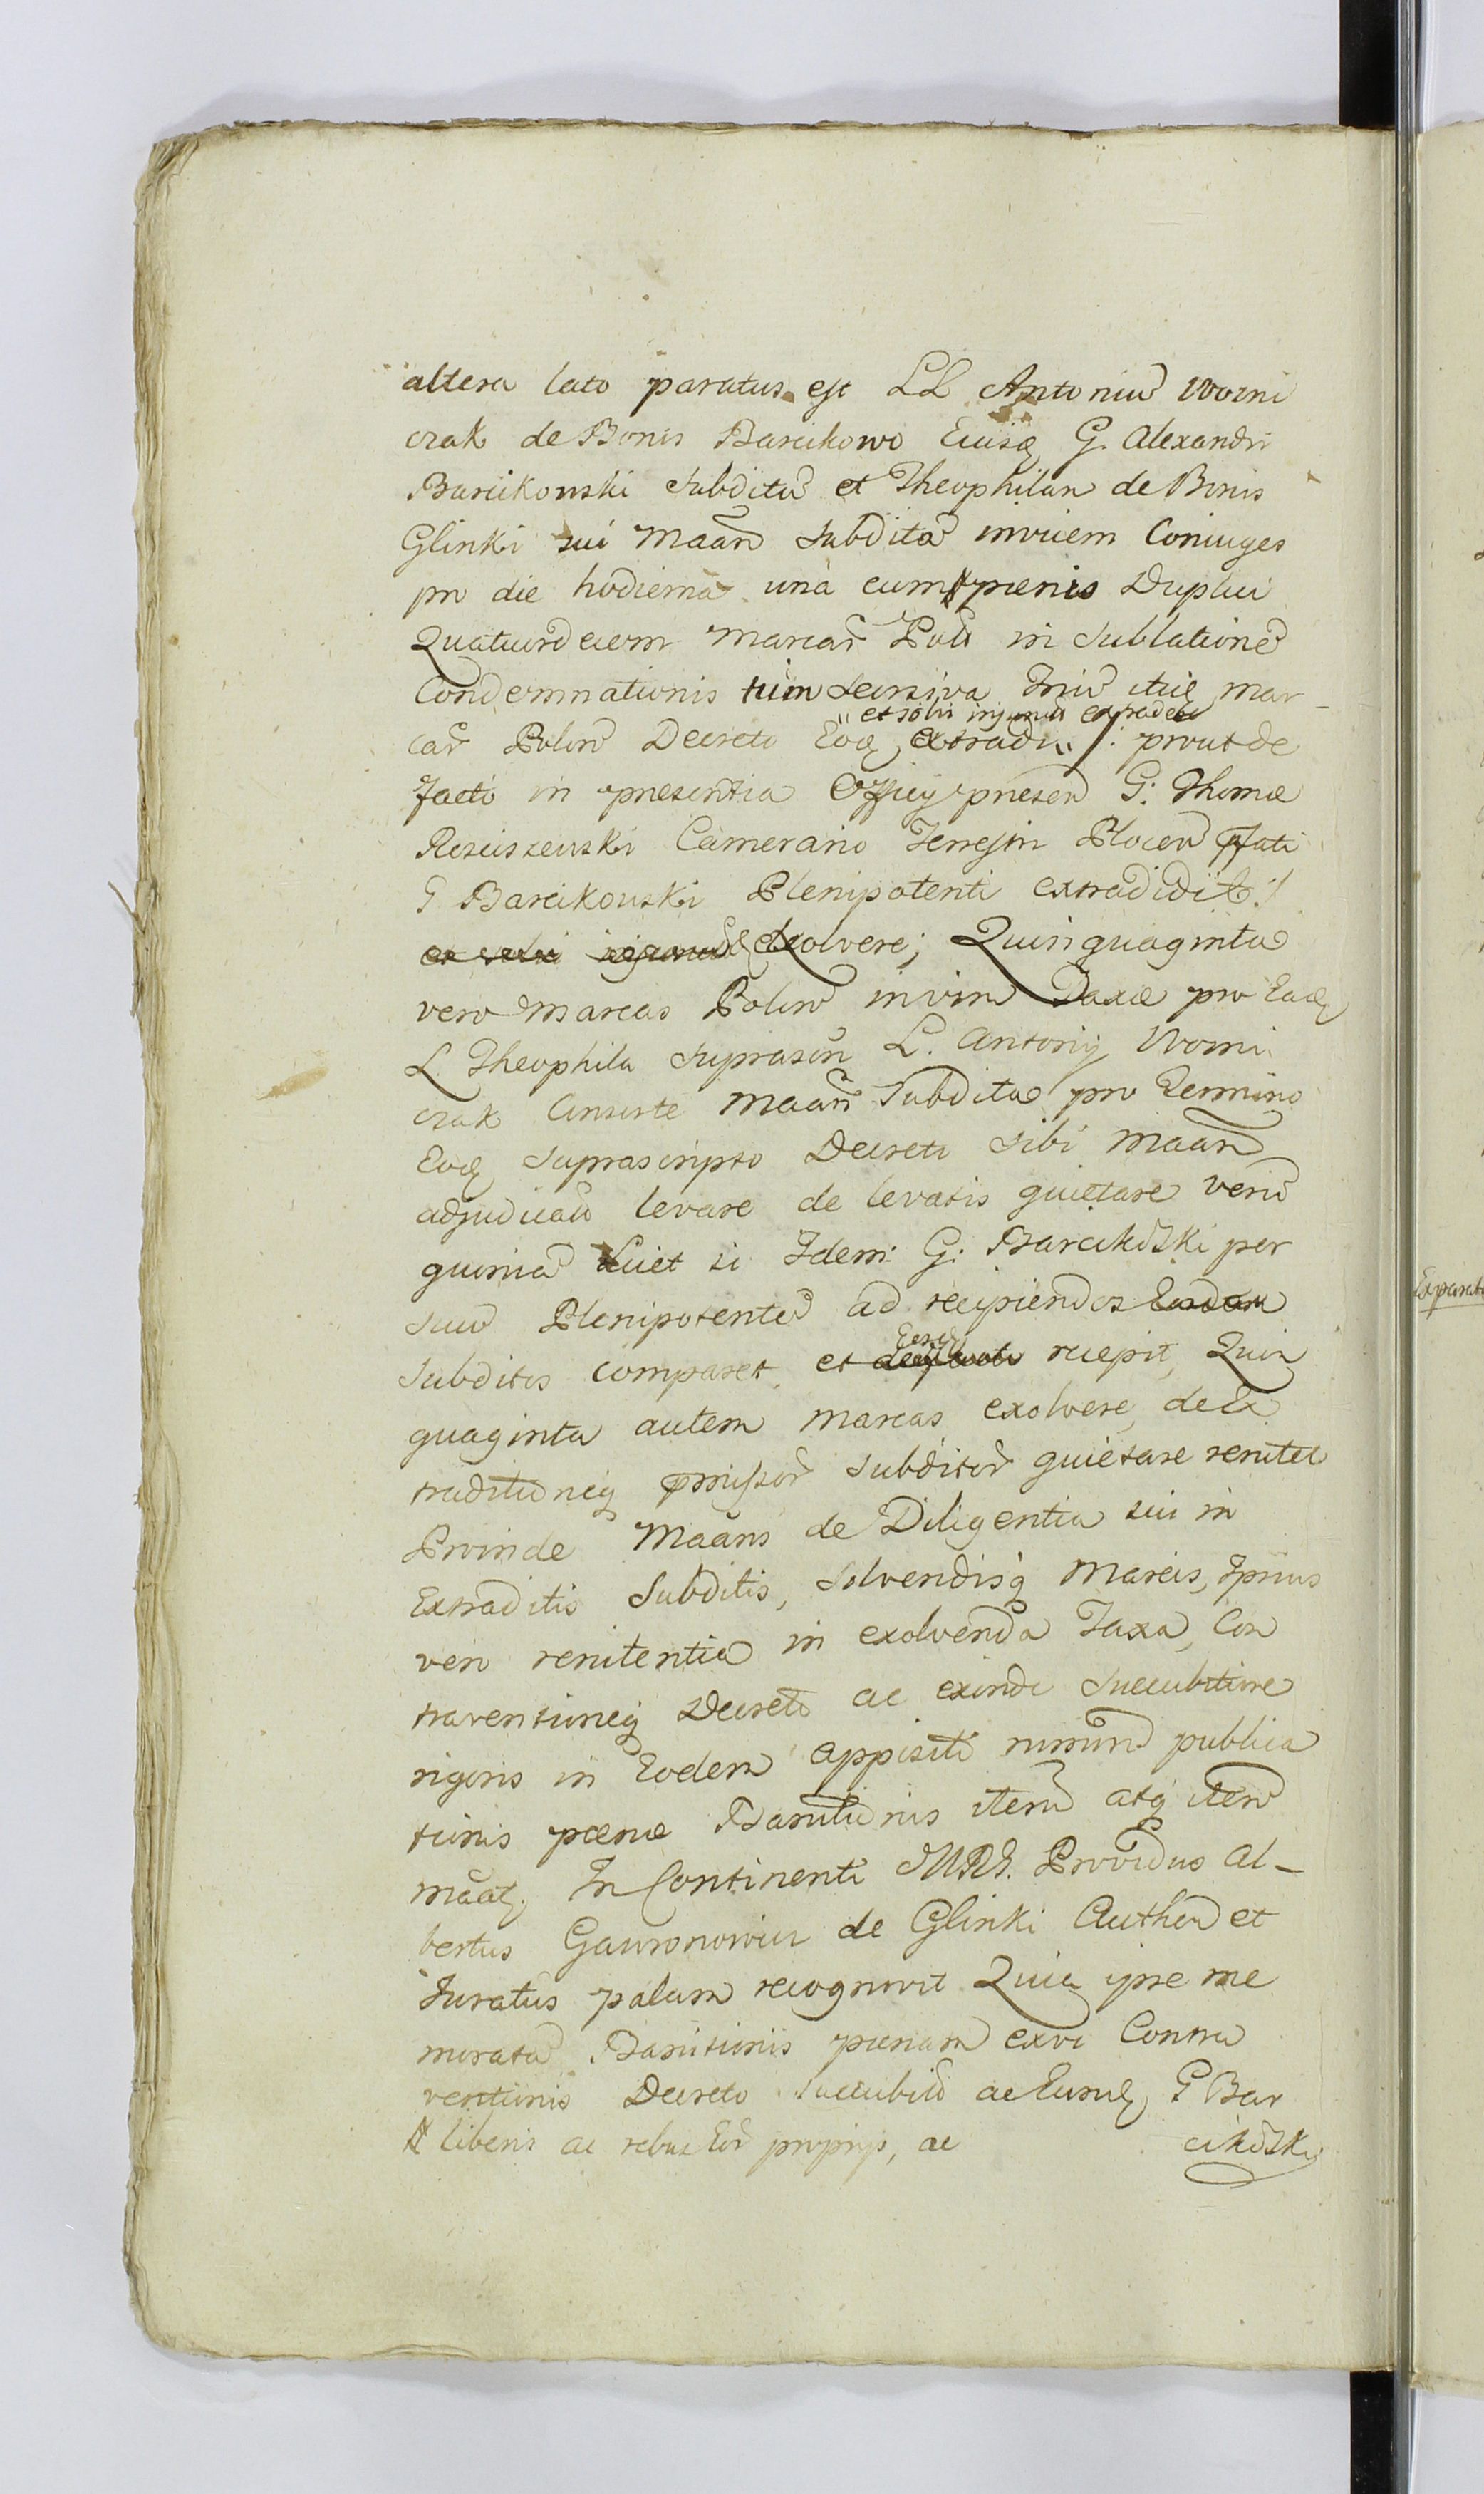 altera lato paratus est LL Antoniũ Worni
czak de Bonis Barcikowo Eiusq G. Alexandri
Barcikowski Subditũ et Theophilam de Bonis
Glinki sui Maãn Subditã invicem Coniuges
pro die hodierna una cum # pœnis Duplici
Quatuordecim Marcar̃ Poll in Sublationẽ
Condemnationis tum
et solvi injunctt extradere
car̃ Polon̄ Decreto Eoq extradi /: prout de
facto in præsentia Officij præsen̄ G: Thomæ
Resciszewski Camerario Terrestri Plocen̄ pfati
G Barcikowski Plenipotenti extradidit :/
exolvere; Quinquaginta
vero Marcas Polon̄ in vim Taxæ pro Eadq
L. Theophila suprascri L. Antonij Worni
czak Consorte Maãn Subdita pro Termino
Eoq suprascripto Decreto sibi Maãn
adjudicatt levare de levatis quietare verũ
quoniã Luiet si Idem G. Barcikow̃ski per
suũ Plenipotentẽ ad recipiendos Eosdem
Subditos comparet, et Eosd recepit, Quin
quaginta autem marcas exolvere, de Ex
traditioneq pmissor̃ Subditor̃ quietare renitet
Proinde Maãns de Diligentia sui in
Extraditis Subditis, Solvendisq̃ Marcis, Ipsius
vero renitentia in exolvenda Taxa, Con
traventioneq Decreto ac exinde Succubitione
rigoris in Eodem appositi publica
tionis pœnæ Banitionis iterũ atq̃ iterũ
mãat. In Continenti MRS. Providus Al-
bertus Gawronowicz de Glinki Authen̄ et
Juratus palam recognovit Quia ipse me
moratã Banitionis pœnam exvi Contra
ventionis Decreto Succubitt ac Eiusd G Bar
# liberis ac rebus Eor̃ proprijs, ac
cikow̃ski
Exparat